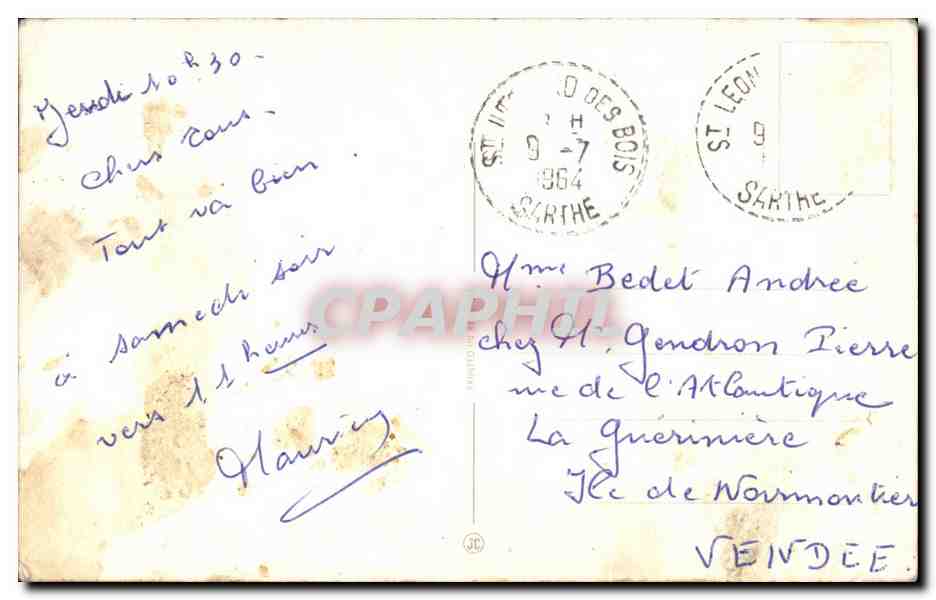 Jeudi 10h30 -
Chers tous -
Tout va bien .
à samedi soir
vers 11 heures
ST LEONARD DES BOIS
9 -7
1964
SARTHE
ST LEON
9
SARTHE
Mme Bedet Andrée
chez M. Gendron Pierre
rue de l'Atlantique
La Guérinière .
Ile de Noirmoutier
VENDEE.
CPAPHIL
JC